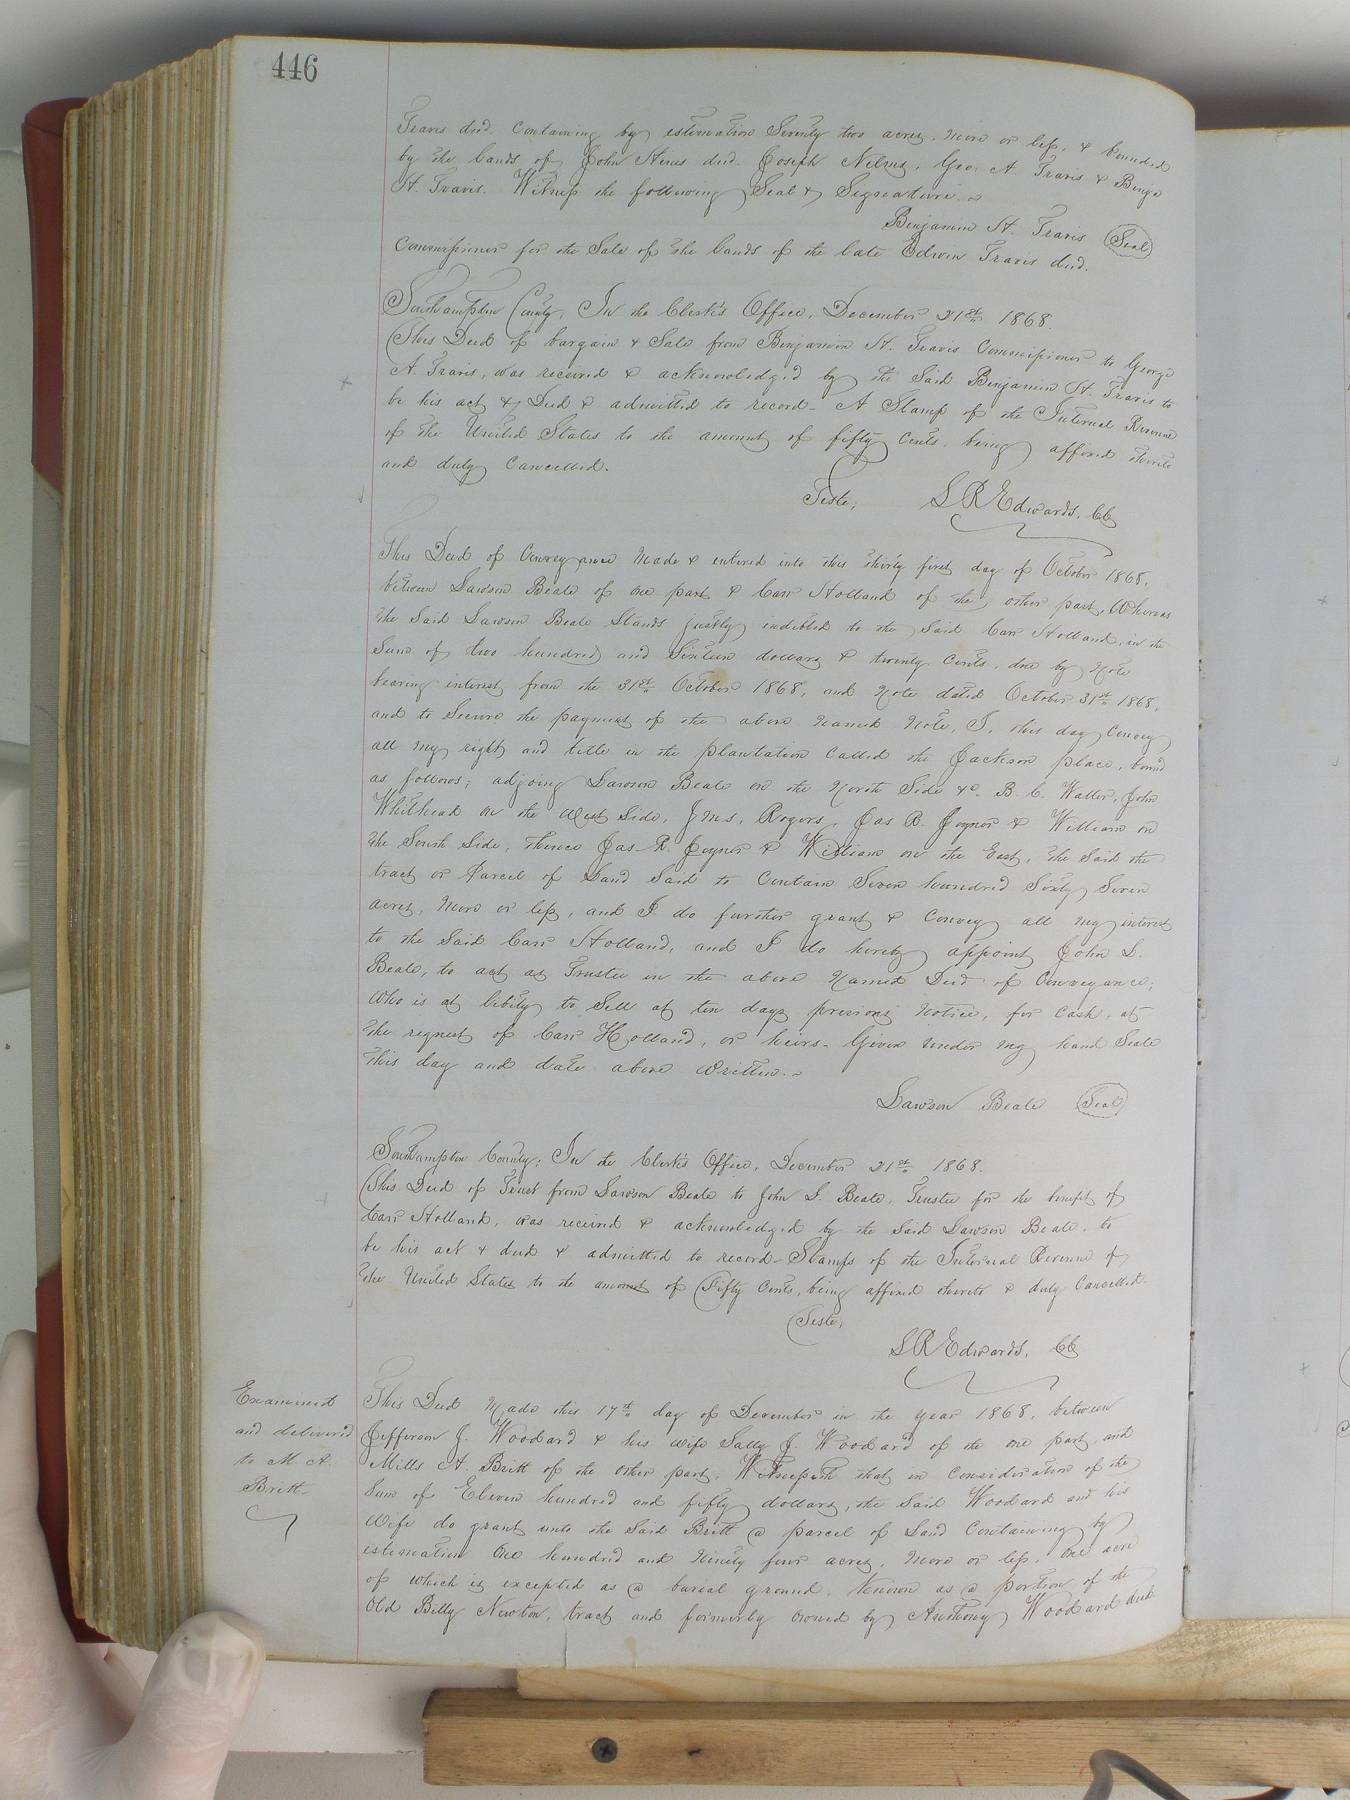 446
Travis decd. Containing by estimation Seventy two acres, more or less, & bounded
by the lands of John decd. Joseph Nelms, Geo. A. Travis & Benja
H. Travis. Witness the following Seal & Signature.
Benjamin H. Travis (Seal)
Commissioner for the Sale of the lands of the late Edwin Travis decd.
Southampton County, In the Clerk's Office, December 21st 1868.
This Deed of bargain & Sale from Benjamin H. Travis Commissioner to George
A. Travis, was received & acknowledged by the Said Benjamin H. Travis to
be his act & Deed & admitted to record. A Stamp of the Internal Revenue
of the United States to the amount of fifty Cents, being affixed thereto
and duly Cancelled.
Teste; L R Edwards, CC
This Deed of Conveyance made & entered into this thirty first day of October 1868,
between Lawson Beale of one part & Carr Holland of the other part, Whereas
the Said Lawson Beale Stands justly indebted to the Said Carr Holland, in the
Sum of two hundred and Sixteen dollars & twenty Cents, due by Note
bearing interest from the 31st October 1868, and Note dated October 31st 1868,
and to Secure the payment of the above named Note, I, this day Convey
all my right and title in the plantation Called the Jackson place, bound
as follows; adjoing Lawson Beale on the North Side &c. B. C. Waller, John
Whithead on the West Side, Jms, Rogers, Jas B. Joyner & William on
the South Side, thence Jas B. Joyner & William on the East, the Said the
tract or Parcel of Land Said to Contain Seven hundred Sixty Seven
acres, more or less, and I do further grant & Convey all my interest
to the Said Carr Holland, and I do hereby appoint John S.
Beale, to act as Trustee in the above Named Deed of Conveyance;
Who is at libity to Sell at ten days previous Notice, for Cash, at
the request of Carr Holland, or heirs. Given under my hand Seale
this day and date above written.
Lawson Beale (Seal)
Southampton County; In the Clerk's Office, December 21st 1868.
This Deed of Trust from Lawson Beale to John S. Beale, Trustee for the benefit of
Carr Holland, was received & acknowledged by the Said Lawson Beale, to
be his act & deed & admitted to record. Stamps of the Internal Revenue of
the United States to the amount of Fifty Cents, being affixed thereto & duly Cancelled.
Teste;
L R Edwards, CC
Examined
and delivered
to M A.
Britt.
This Deed Made this 17th day of December in the year 1868, between
Jefferson J. Woodard & his wife Sally J. Woodard of the one part, and
Mills A. Britt of the other part, Witnesseth that in Consideration of the
Sum of Eleven hundred and fifty dollars, the Said Woodard and his
Wife do grant unto the Said Britt a parcel of Land Containing by
estimation One hundred and Ninety four acres, more or less, One acre
of which is excepted as a burial ground. Known as a portion of the
Old Billy Newton, tract and formerly owned by Anthony Woodard decd